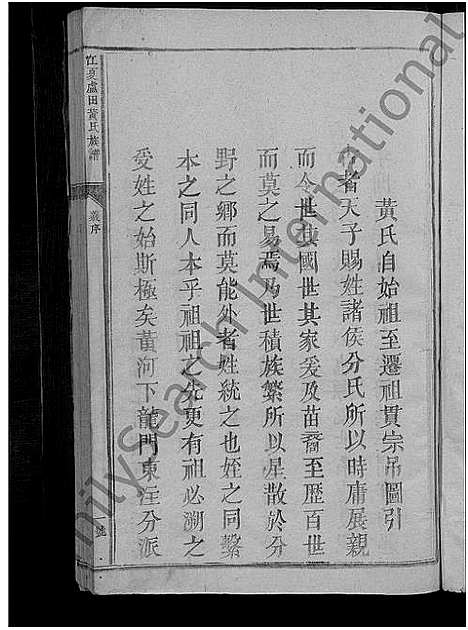 黃氏自始祖至遷祖貫宗吊圖引
者天子賜姓諸侯分氏所以時庸展親
而令世其國世其家爰及苗裔至歷百世
而莫之易焉乃世積族繁所以星散於分
野之鄉而莫能外者姓統之也姓之同繫
本之同人本乎祖祖之先更有祖必溯之
受姓之始斯極矣黃河下龍門東注分派
江夏盧田黃氏族譜
序
一號
FamilySearch International